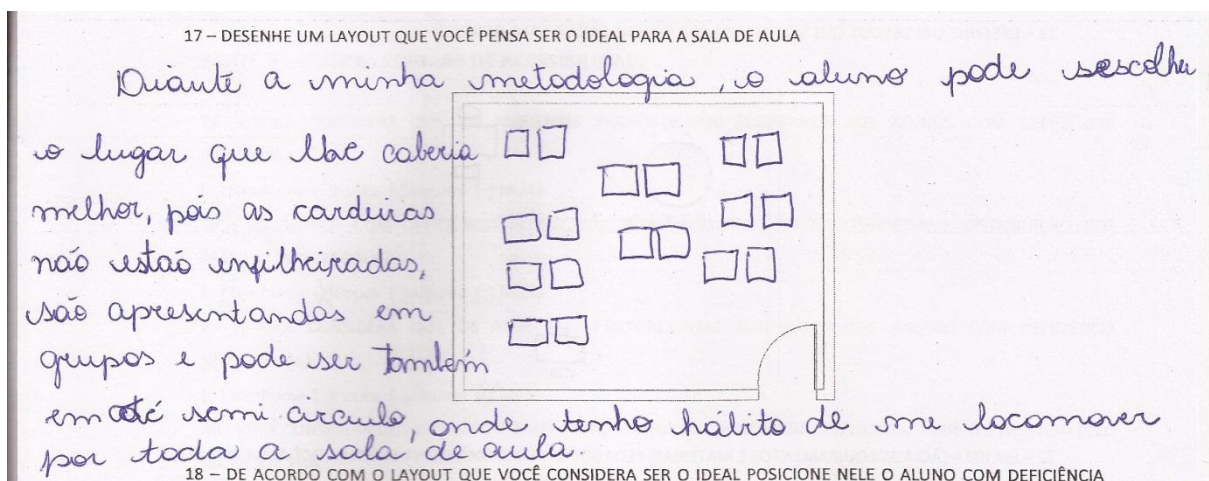 17 – DESENHE UM LAYOUT QUE VOCÊ PENSA SER O IDEAL PARA A SALA DE AULA
Duante a minha metodologia, o aluno pode sescolher
o lugar que lhe caberia
melhor, pois as cardeiras
não estão enfilheiradas,
são apresentandas em
grupos e pode ser também
em até semi circulo, onde tenho hábito de me locomover
por toda a sala de aula.
18 – DE ACORDO COM O LAYOUT QUE VOCÊ CONSIDERA SER O IDEAL POSICIONE NELE O ALUNO COM DEFICIÊNCIA